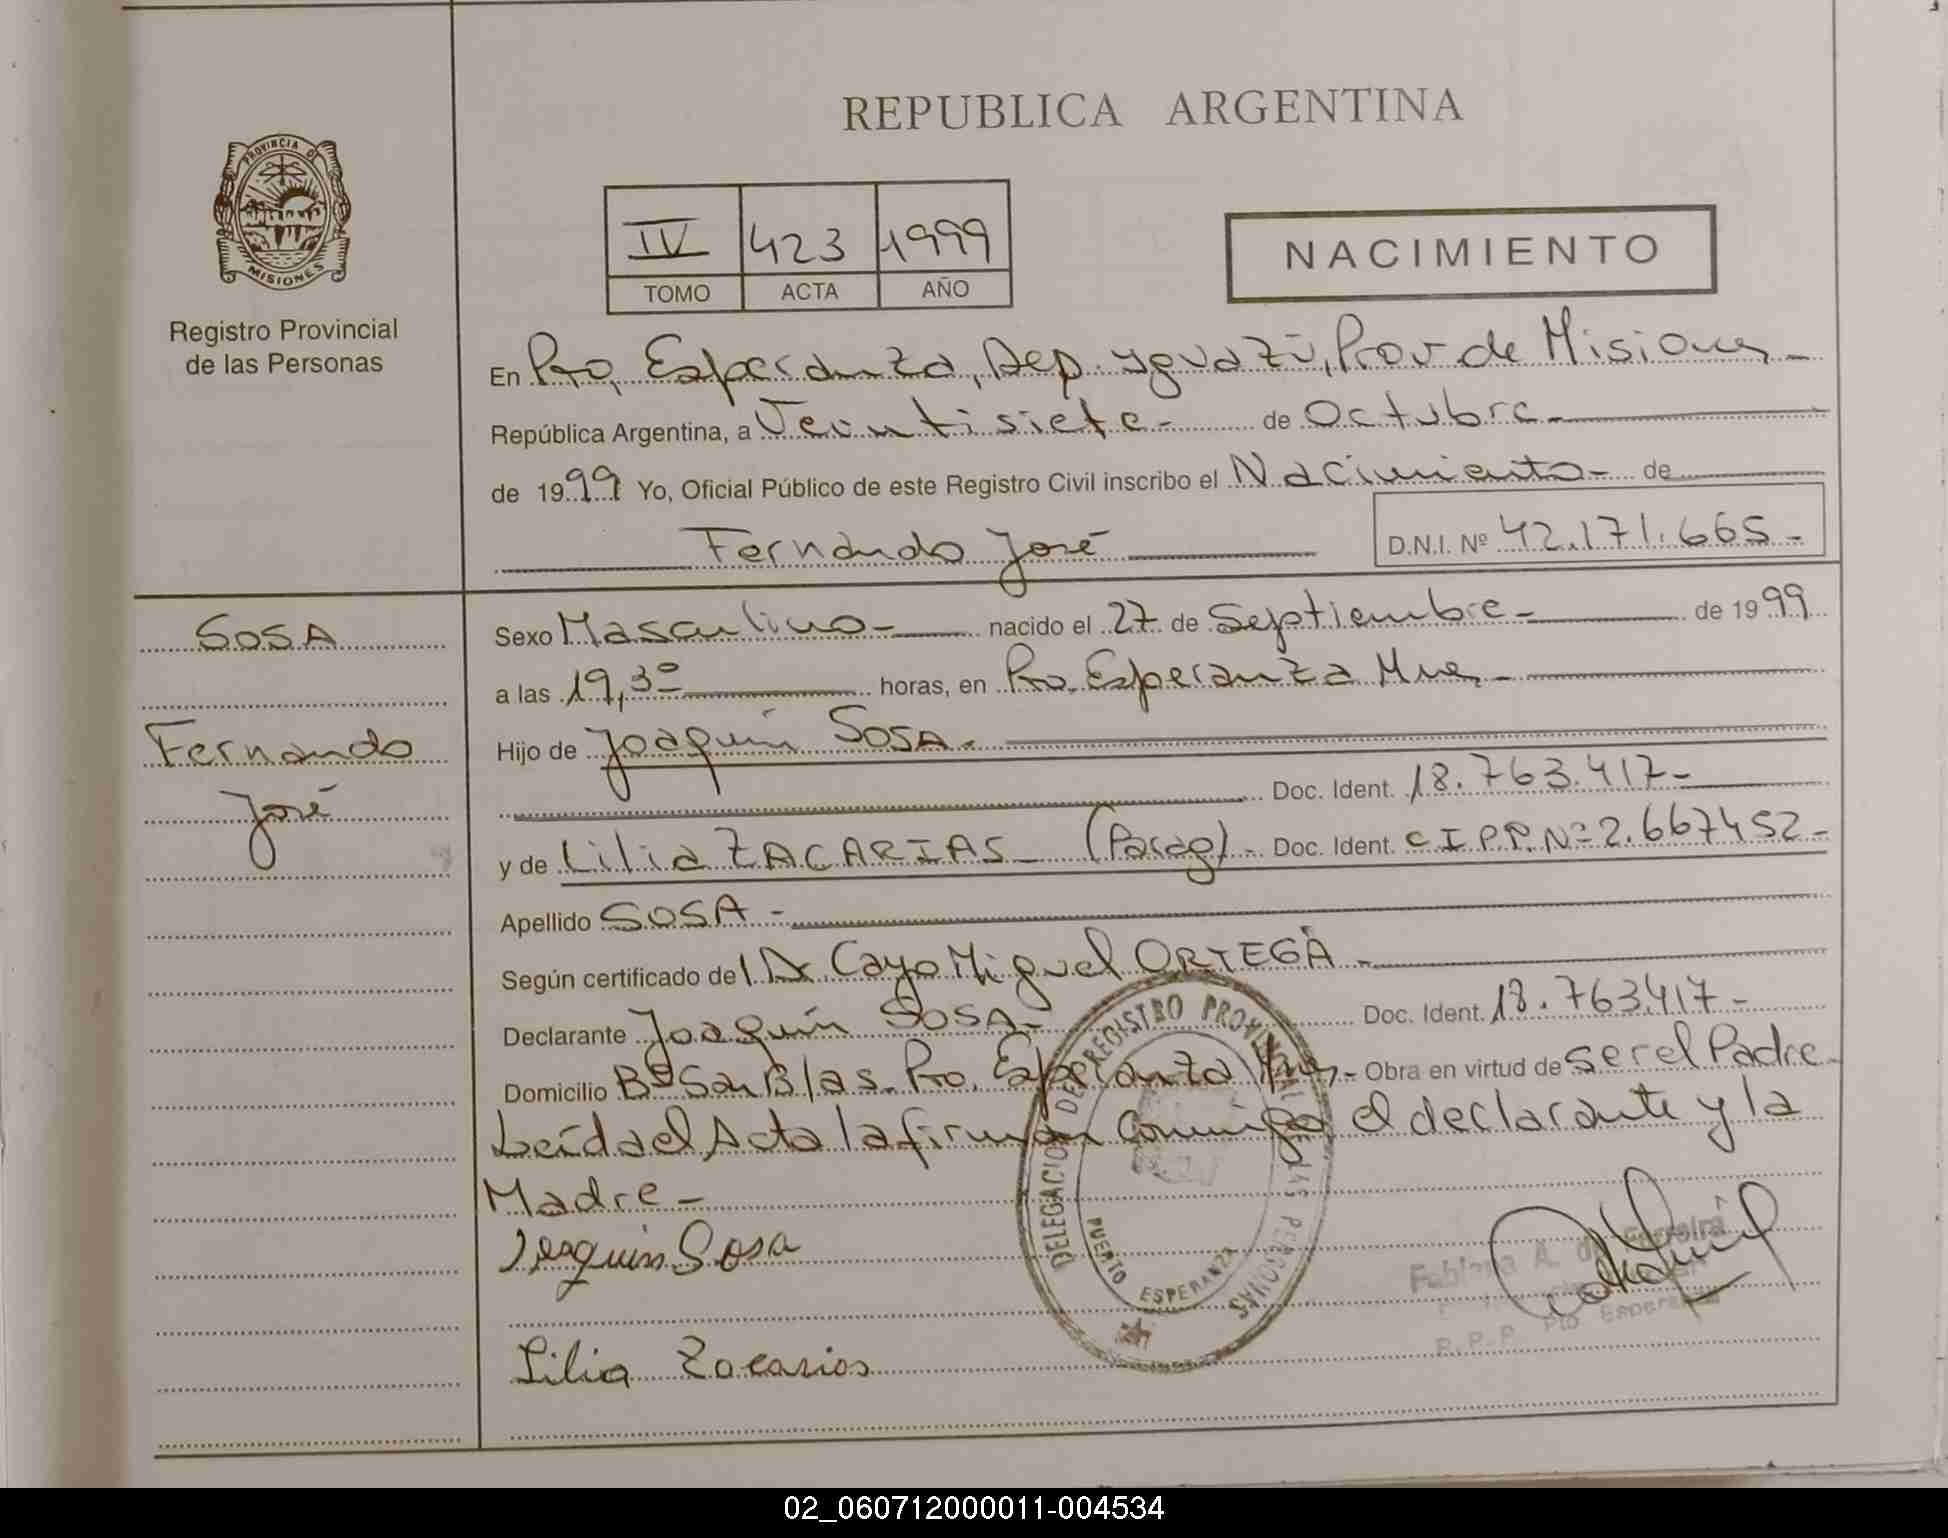 REPUBLICA ARGENTINA
PROVINCIA DE
MISIONES
Registro Provincial
de las Personas
IV 423 1999
TOMO ACTA AÑO
NACIMIENTO
En Pto. Esperanza, Dep. Yguazú, Prov de Misiones -
República Argentina, a Veintisiete - de Octubre -
de 1999 Yo, Oficial Público de este Registro Civil inscribo el Nacimiento - de
Fernando José
D.N.I. Nº 42.171.665 -
SOSA
Fernando
José
Sexo Masculino - nacido el 27 de Septiembre - de 1999
a las 19,30 horas, en Pto. Esperanza Mnes -
Hijo de Joaquín SOSA.
Doc. Ident. 18.763.417 -
y de Lilia ZACARIAS - (Parag) - Doc. Ident. C I P.P. Nº 2.667452 -
Apellido SOSA -
Según certificado del Dr. Cayo Miguel ORTEGA -
Declarante Joaquín SOSA - Doc. Ident. 18.763.417 -
Domicilio Bº San Blas - Pto. Esperanza Mnes - Obra en virtud de ser el Padre -
Leída el Acta la firman conmigo el declarante y la
Madre -
Joaquin Sosa
Lilia Zacarias
DELEGACION DEL REGISTRO PROVINCIAL DE LAS PERSONAS
PUERTO ESPERANZA
Fabiana A. de Ferreira
R.P.P. Pto Esperanza
02_060712000011-004534